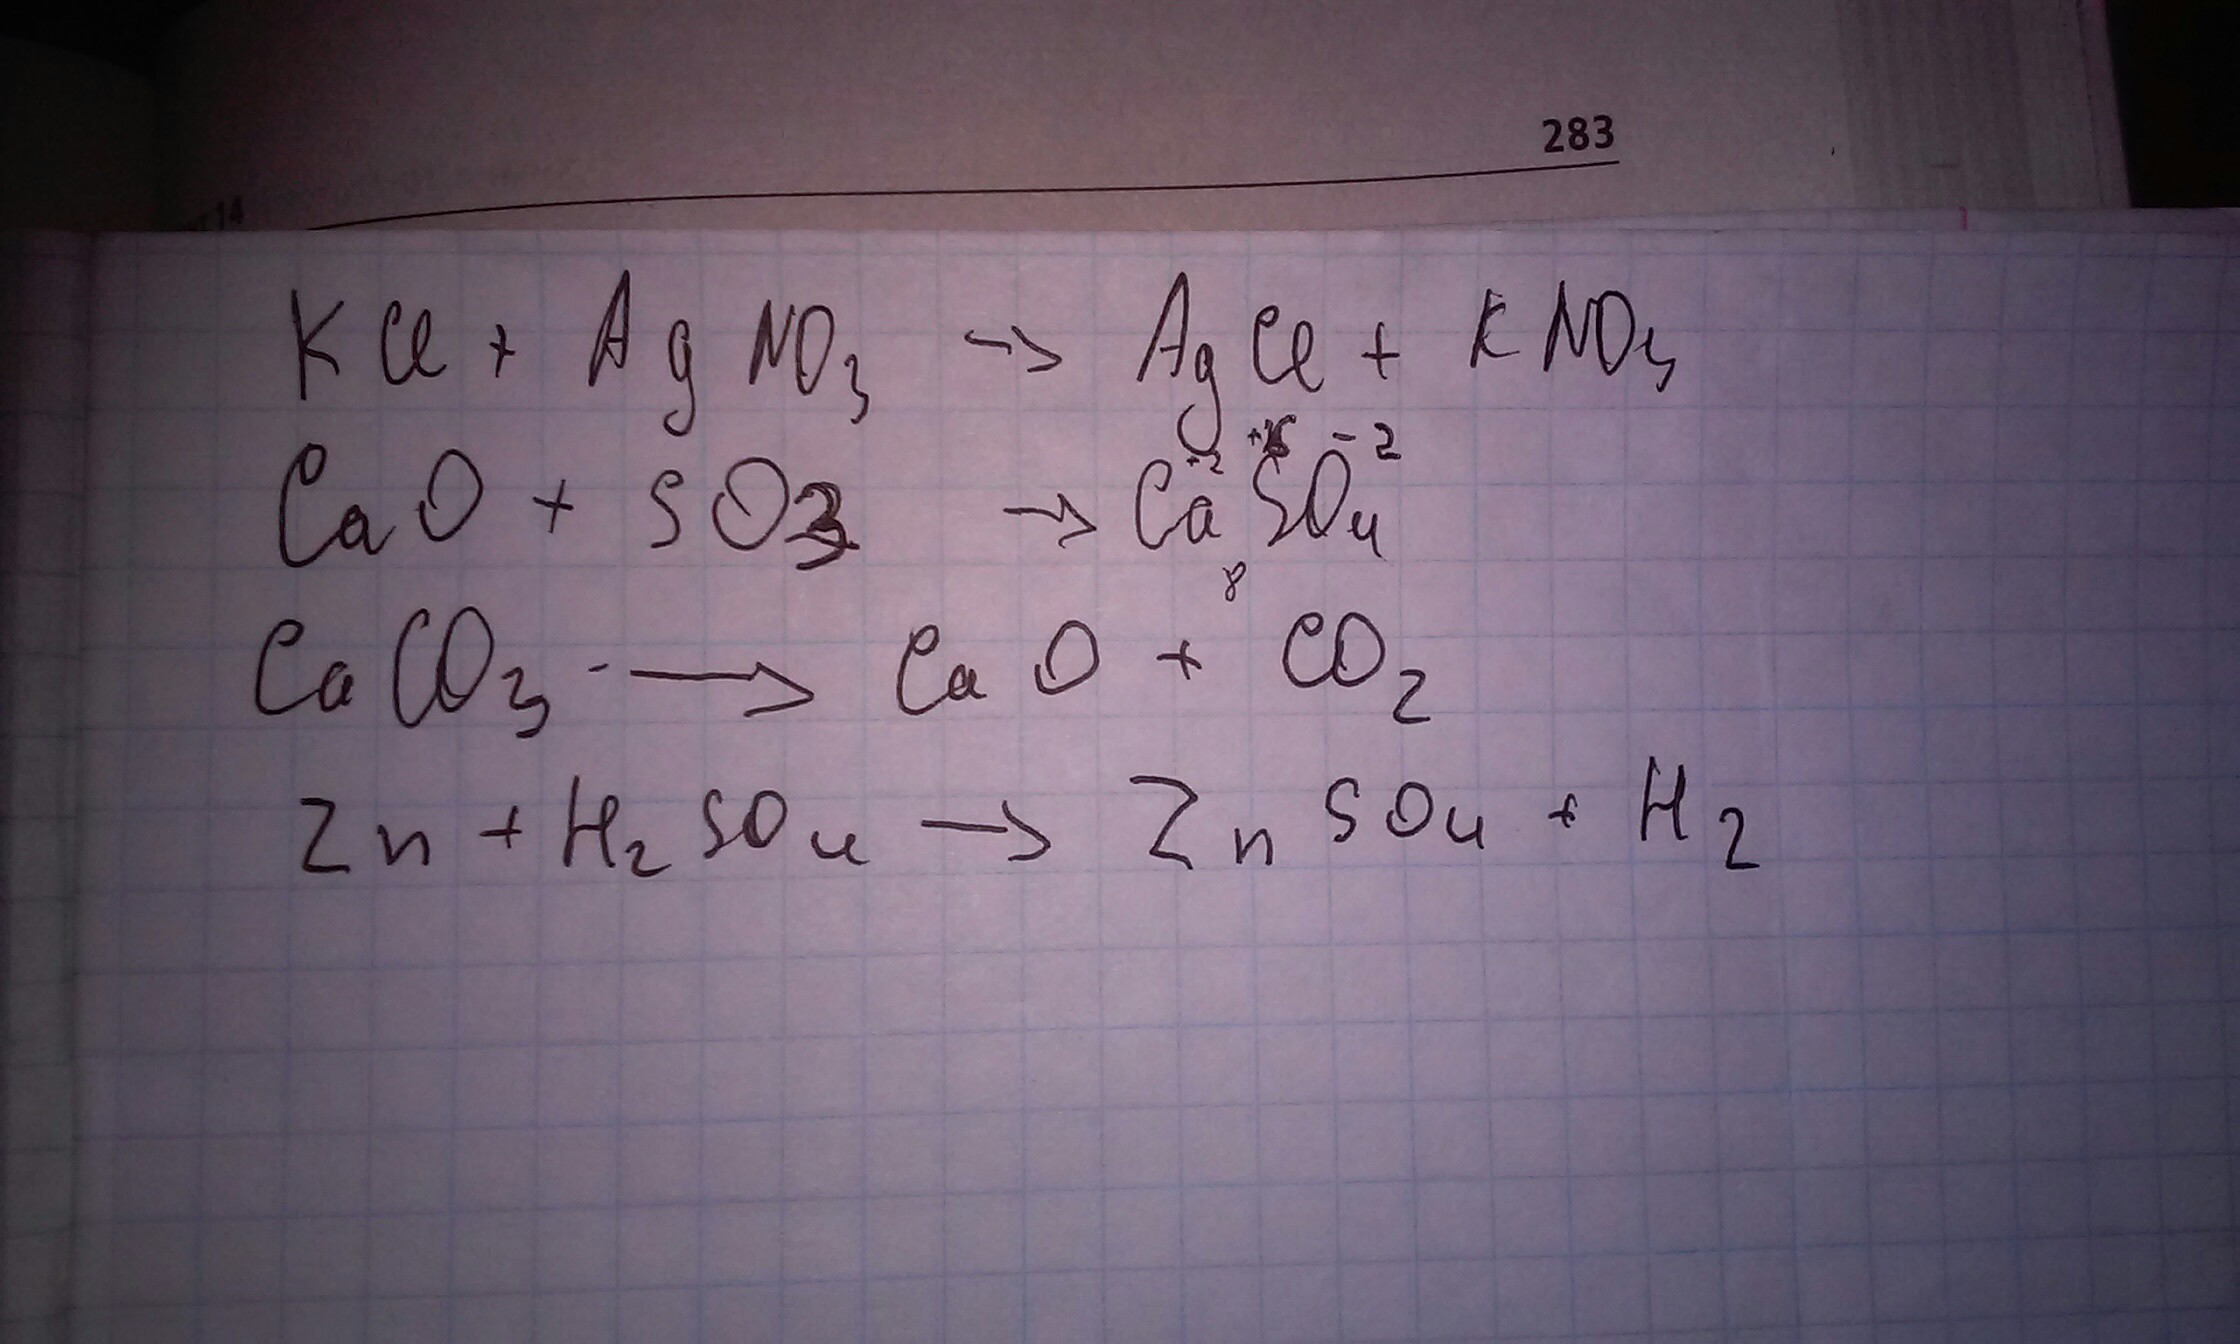 283
14
KCl + AgNO₃ → AgCl + KNO₃
+6 -2
+2
CaO + SO₃ → CaSO₄
8
CaCO₃ → CaO + CO₂
Zn + H₂SO₄ → ZnSO₄ + H₂